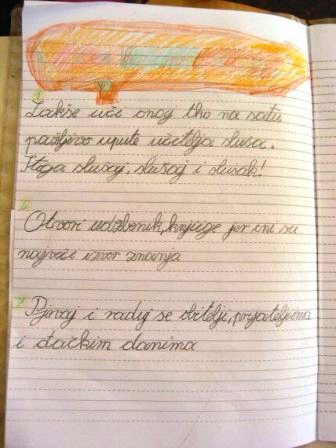 Lakše uči onaj tko na satu
pažljivo upute učitelja sluša.
Stoga slušaj, slušaj i slušaj!
Otvori udžbenik, knjige jer oni su
najveći izvor znanja
Pjevaj i raduj se obitelji, prijateljima
i đačkim danima